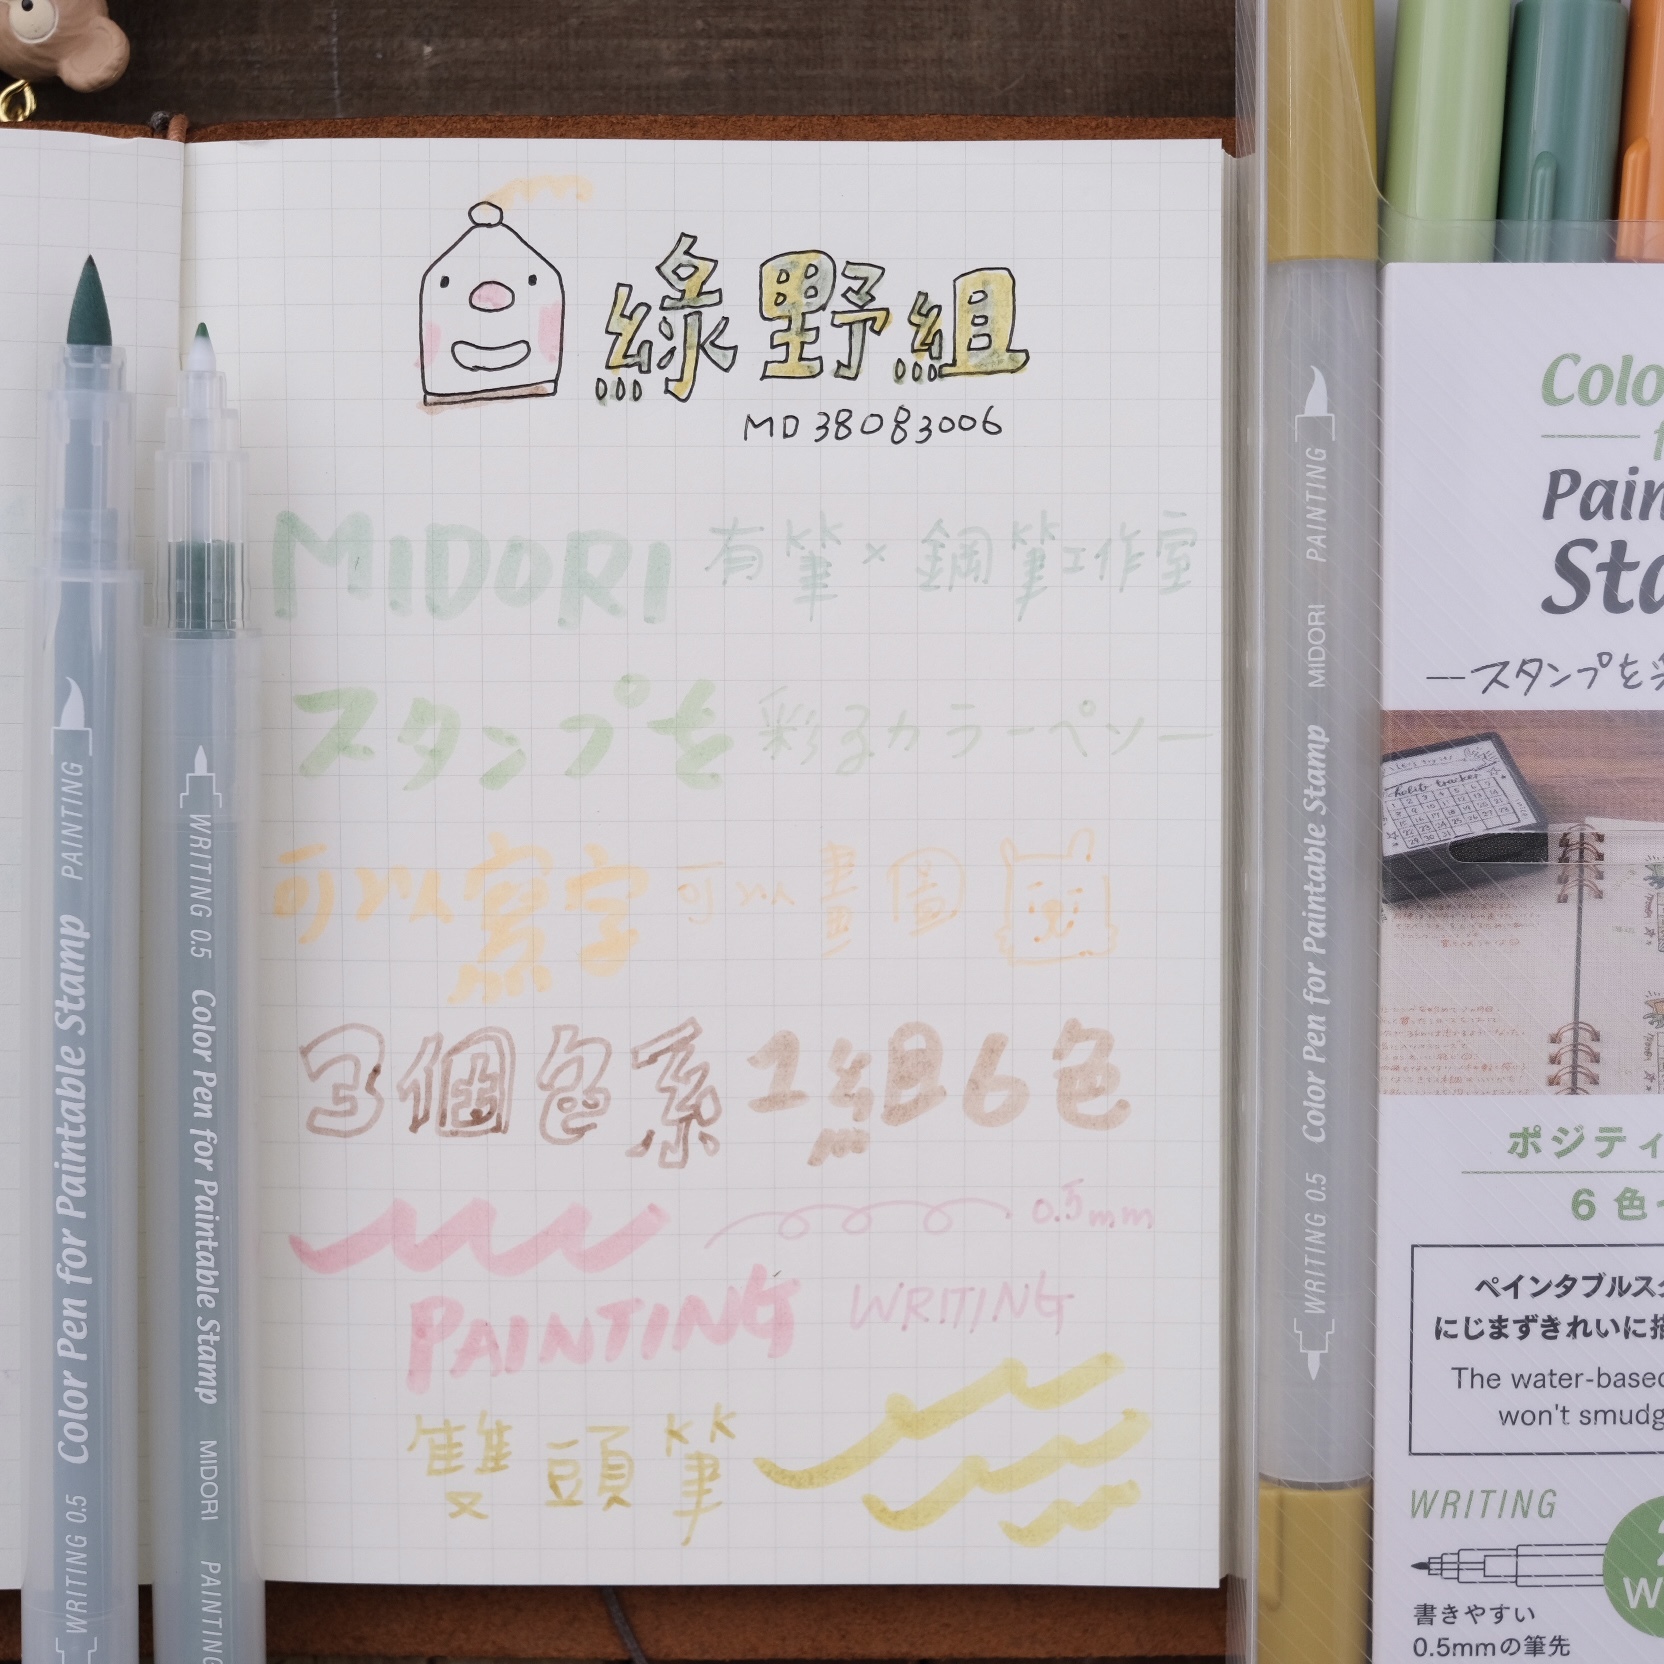 綠野組
MD38083006
MIDORI 有筆×鋼筆工作室
スタンプを彩るカラーペン
可以寫字 可以畫圖
3個色系 1組6色
0.5mm
PAINTING WRITING
雙頭筆
WRITING 0.5 Color Pen for Paintable Stamp PAINTING
WRITING 0.5 Color Pen for Paintable Stamp MIDORI PAINTING
WRITING 0.5 Color Pen for Paintable Stamp MIDORI PAINTING
Colo
Pain
Sta
—スタンプを彩
habit tracker
ポジティ
6色
ペインタブルスタ
にじまずきれいに描
The water-based
won't smudg
WRITING
書きやすい
0.5mmの筆先